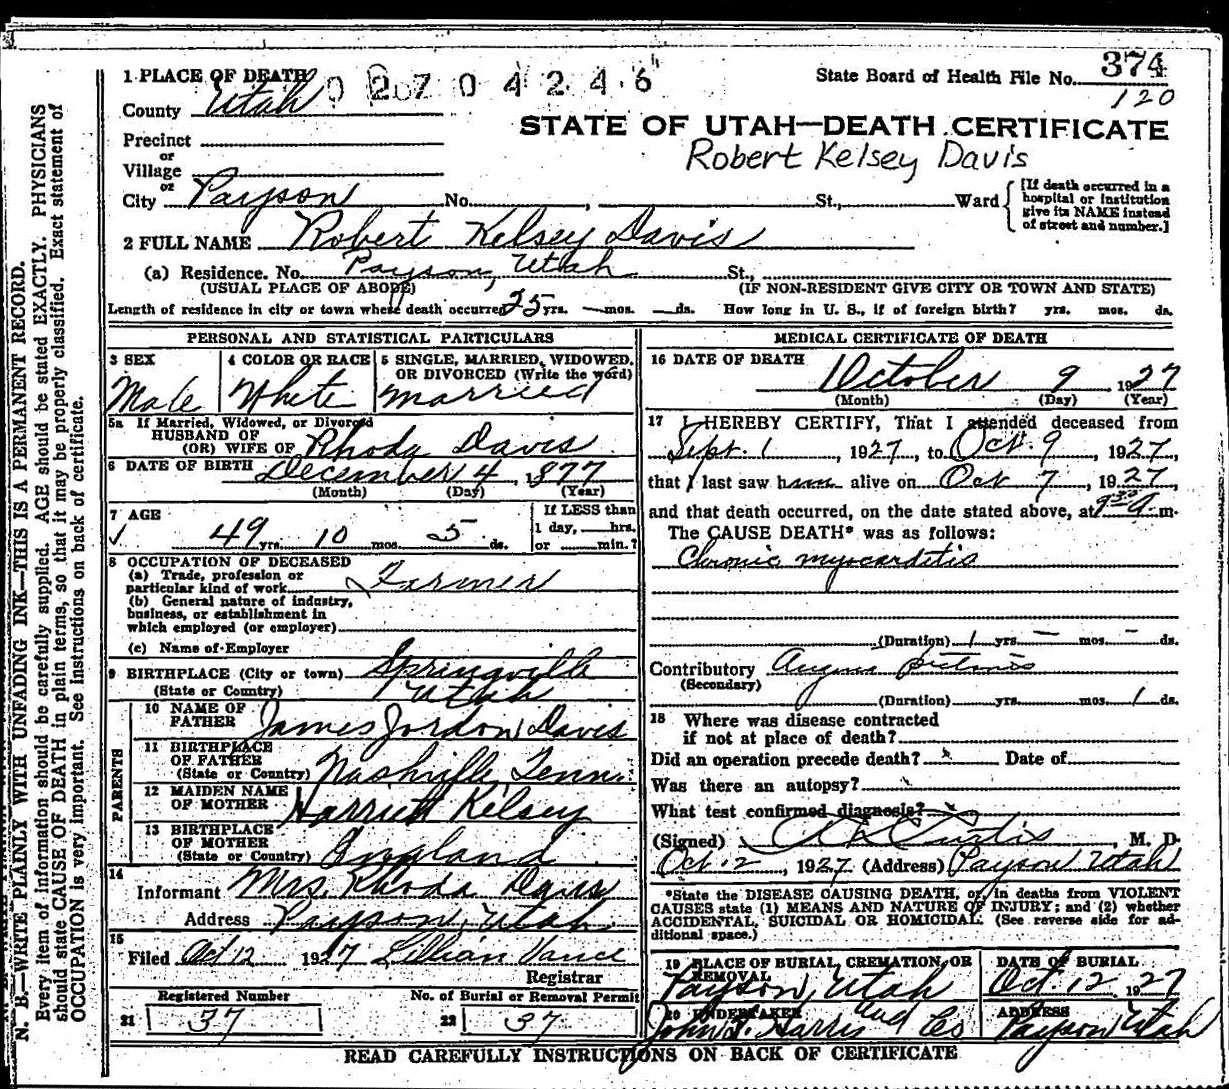 N. B.—WRITE PLAINLY WITH UNFADING INK—THIS IS A PERMANENT RECORD.
Every item of information should be carefully supplied. AGE should be stated EXACTLY. PHYSICIANS
should state CAUSE OF DEATH in plain terms, so that it may be properly classified. Exact statement of
OCCUPATION is very important. See instructions on back of certificate.
1 PLACE OF DEATH
0 2 7 0 4 2 4 6
State Board of Health File No. 374
120
County Utah
STATE OF UTAH—DEATH CERTIFICATE
Robert Kelsey Davis
Precinct
or
Village
or
City Payson No. , St., Ward
[If death occurred in a
hospital or institution
give its NAME instead
of street and number.]
2 FULL NAME Robert Kelsey Davis
(a) Residence. No. Payson, Utah St.,
(USUAL PLACE OF ABODE) (IF NON-RESIDENT GIVE CITY OR TOWN AND STATE)
Length of residence in city or town where death occurred 25 yrs. — mos. — ds. How long in U. S., if of foreign birth? yrs. mos. ds.
PERSONAL AND STATISTICAL PARTICULARS
3 SEX
Male
4 COLOR OR RACE
White
5 SINGLE, MARRIED, WIDOWED,
OR DIVORCED (Write the word)
married
5a If Married, Widowed, or Divorced
HUSBAND OF
(OR) WIFE OF Rhoda Davis
6 DATE OF BIRTH December 4, 1877
(Month) (Day) (Year)
7 AGE
49 yrs. 10 mos. 5 ds.
If LESS than
1 day, hrs.
or min.?
8 OCCUPATION OF DECEASED
(a) Trade, profession or
particular kind of work Farmer
(b) General nature of industry,
business, or establishment in
which employed (or employer)
(c) Name of Employer
9 BIRTHPLACE (City or town) Springville
(State or Country) Utah
PARENTS
10 NAME OF
FATHER James Jordon Davis
11 BIRTHPLACE
OF FATHER
(State or Country) Nashville, Tenn.
12 MAIDEN NAME
OF MOTHER Harriett Kelsey
13 BIRTHPLACE
OF MOTHER
(State or Country) England
14
Informant Mrs. Rhoda Davis
Address Payson, Utah
15
Filed Oct 12 1927 Lillian Vance
Registrar
Registered Number
21 37
No. of Burial or Removal Permit
22 37
MEDICAL CERTIFICATE OF DEATH
16 DATE OF DEATH
October 9, 1927
(Month) (Day) (Year)
17 I HEREBY CERTIFY, That I attended deceased from
Sept. 1, 1927, to Oct. 9, 1927,
that I last saw him alive on Oct 7, 1927,
and that death occurred, on the date stated above, at 9 30 A. m.
The CAUSE DEATH* was as follows:
Chronic myocarditis
(Duration) 1 yrs. — mos. — ds.
Contributory Angina pectoris
(Secondary)
(Duration) yrs. mos. 1 ds.
18 Where was disease contracted
if not at place of death?
Did an operation precede death? Date of
Was there an autopsy?
What test confirmed diagnosis?
(Signed) Curtis, M. D.
Oct 12, 1927 (Address) Payson Utah
*State the DISEASE CAUSING DEATH, or in deaths from VIOLENT
CAUSES state (1) MEANS AND NATURE OF INJURY; and (2) whether
ACCIDENTAL, SUICIDAL OR HOMICIDAL. (See reverse side for ad-
ditional space.)
19 PLACE OF BURIAL, CREMATION, OR
REMOVAL
Payson, Utah
DATE OF BURIAL
Oct. 12 1927
20 UNDERTAKER
John Harris and Co
ADDRESS
Payson Utah
READ CAREFULLY INSTRUCTIONS ON BACK OF CERTIFICATE